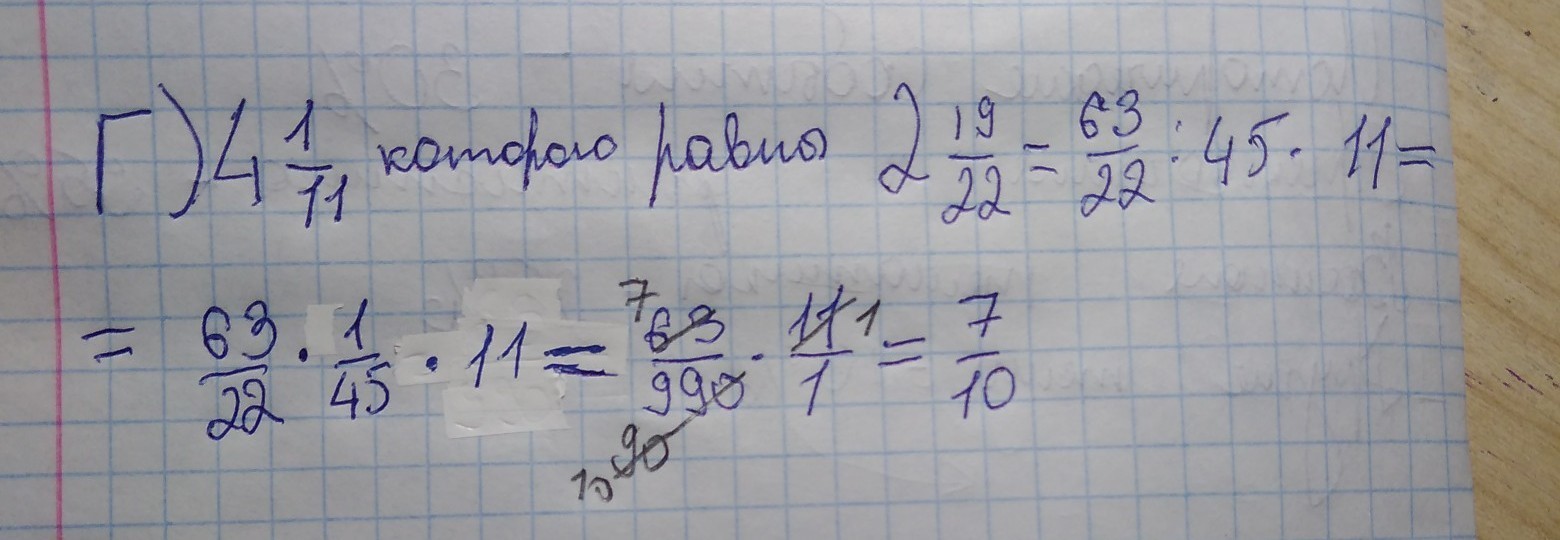 Г) 4 1/11 которого равны 2 19/22 = 63/22 : 45 · 11 =
= 63/22 · 1/45 · 11 = 7 63/990 90 10 · 11/1 1 = 7/10